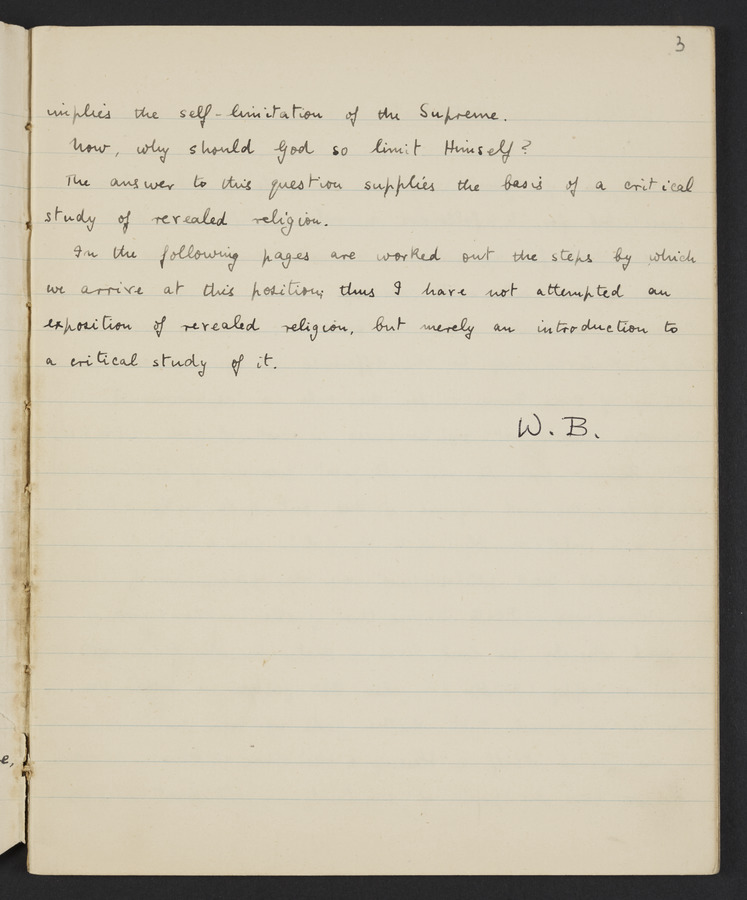 3
implies the self-limitation of the Supreme.
Now, why should God so limit Himself?
The answer to this question supplies the basis of a critical
study of revealed religion.
In the following pages are worked out the steps by which
we arrive at this position; thus I have not attempted an
exposition of revealed religion, but merely an introduction to
a critical study of it.
W. B.
e,